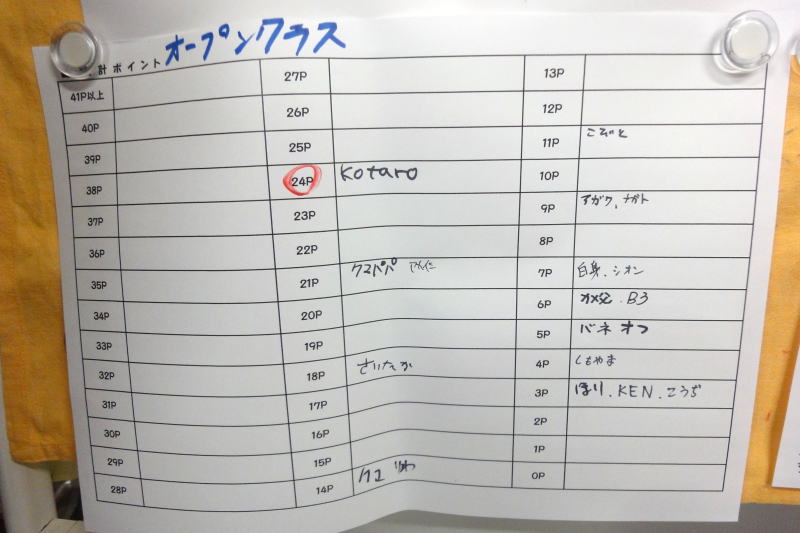 計ポイント オープンクラス
41P以上
40P
39P
38P
37P
36P
35P
34P
33P
32P
31P
30P
29P
28P
27P
26P
25P
24P Kotaro
23P
22P
21P クマパパ
20P
19P
18P さいたか
17P
16P
15P
14P クエ
13P
12P
11P こぞと
10P
9P アガク、ナガト
8P
7P 白身、シオン
6P カメ父、B3
5P バネ オフ
4P しもやま
3P ほり、KEN、こうぢ
2P
1P
0P